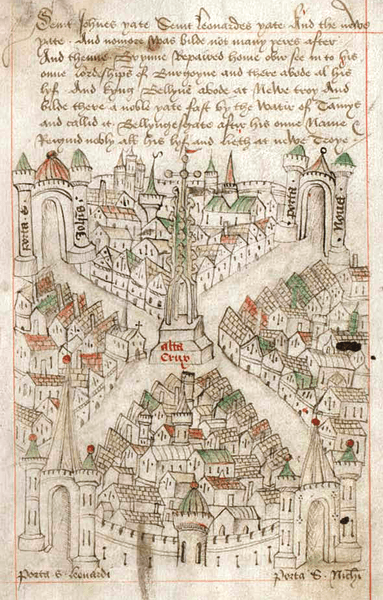 Seint Johnes yate Seint Leonardes yate And the newe
yate . And nomore was bilde not many yeres after
And thenne Brynne repaired home over see in to his
onne lordeships of Burgoyne and there abode al his
lyf And kyng Bellyne abode at Newe troy And
bilde there a noble yate fast by the Watir of Tamys
and called it Bellyngesgate after his onne Name &
Reigned nobly all his lyf and lieth at neWe Troye
Porta S Johis
Porta Nova
alta
Crux
porta S Leonardi
Porta S Nichi